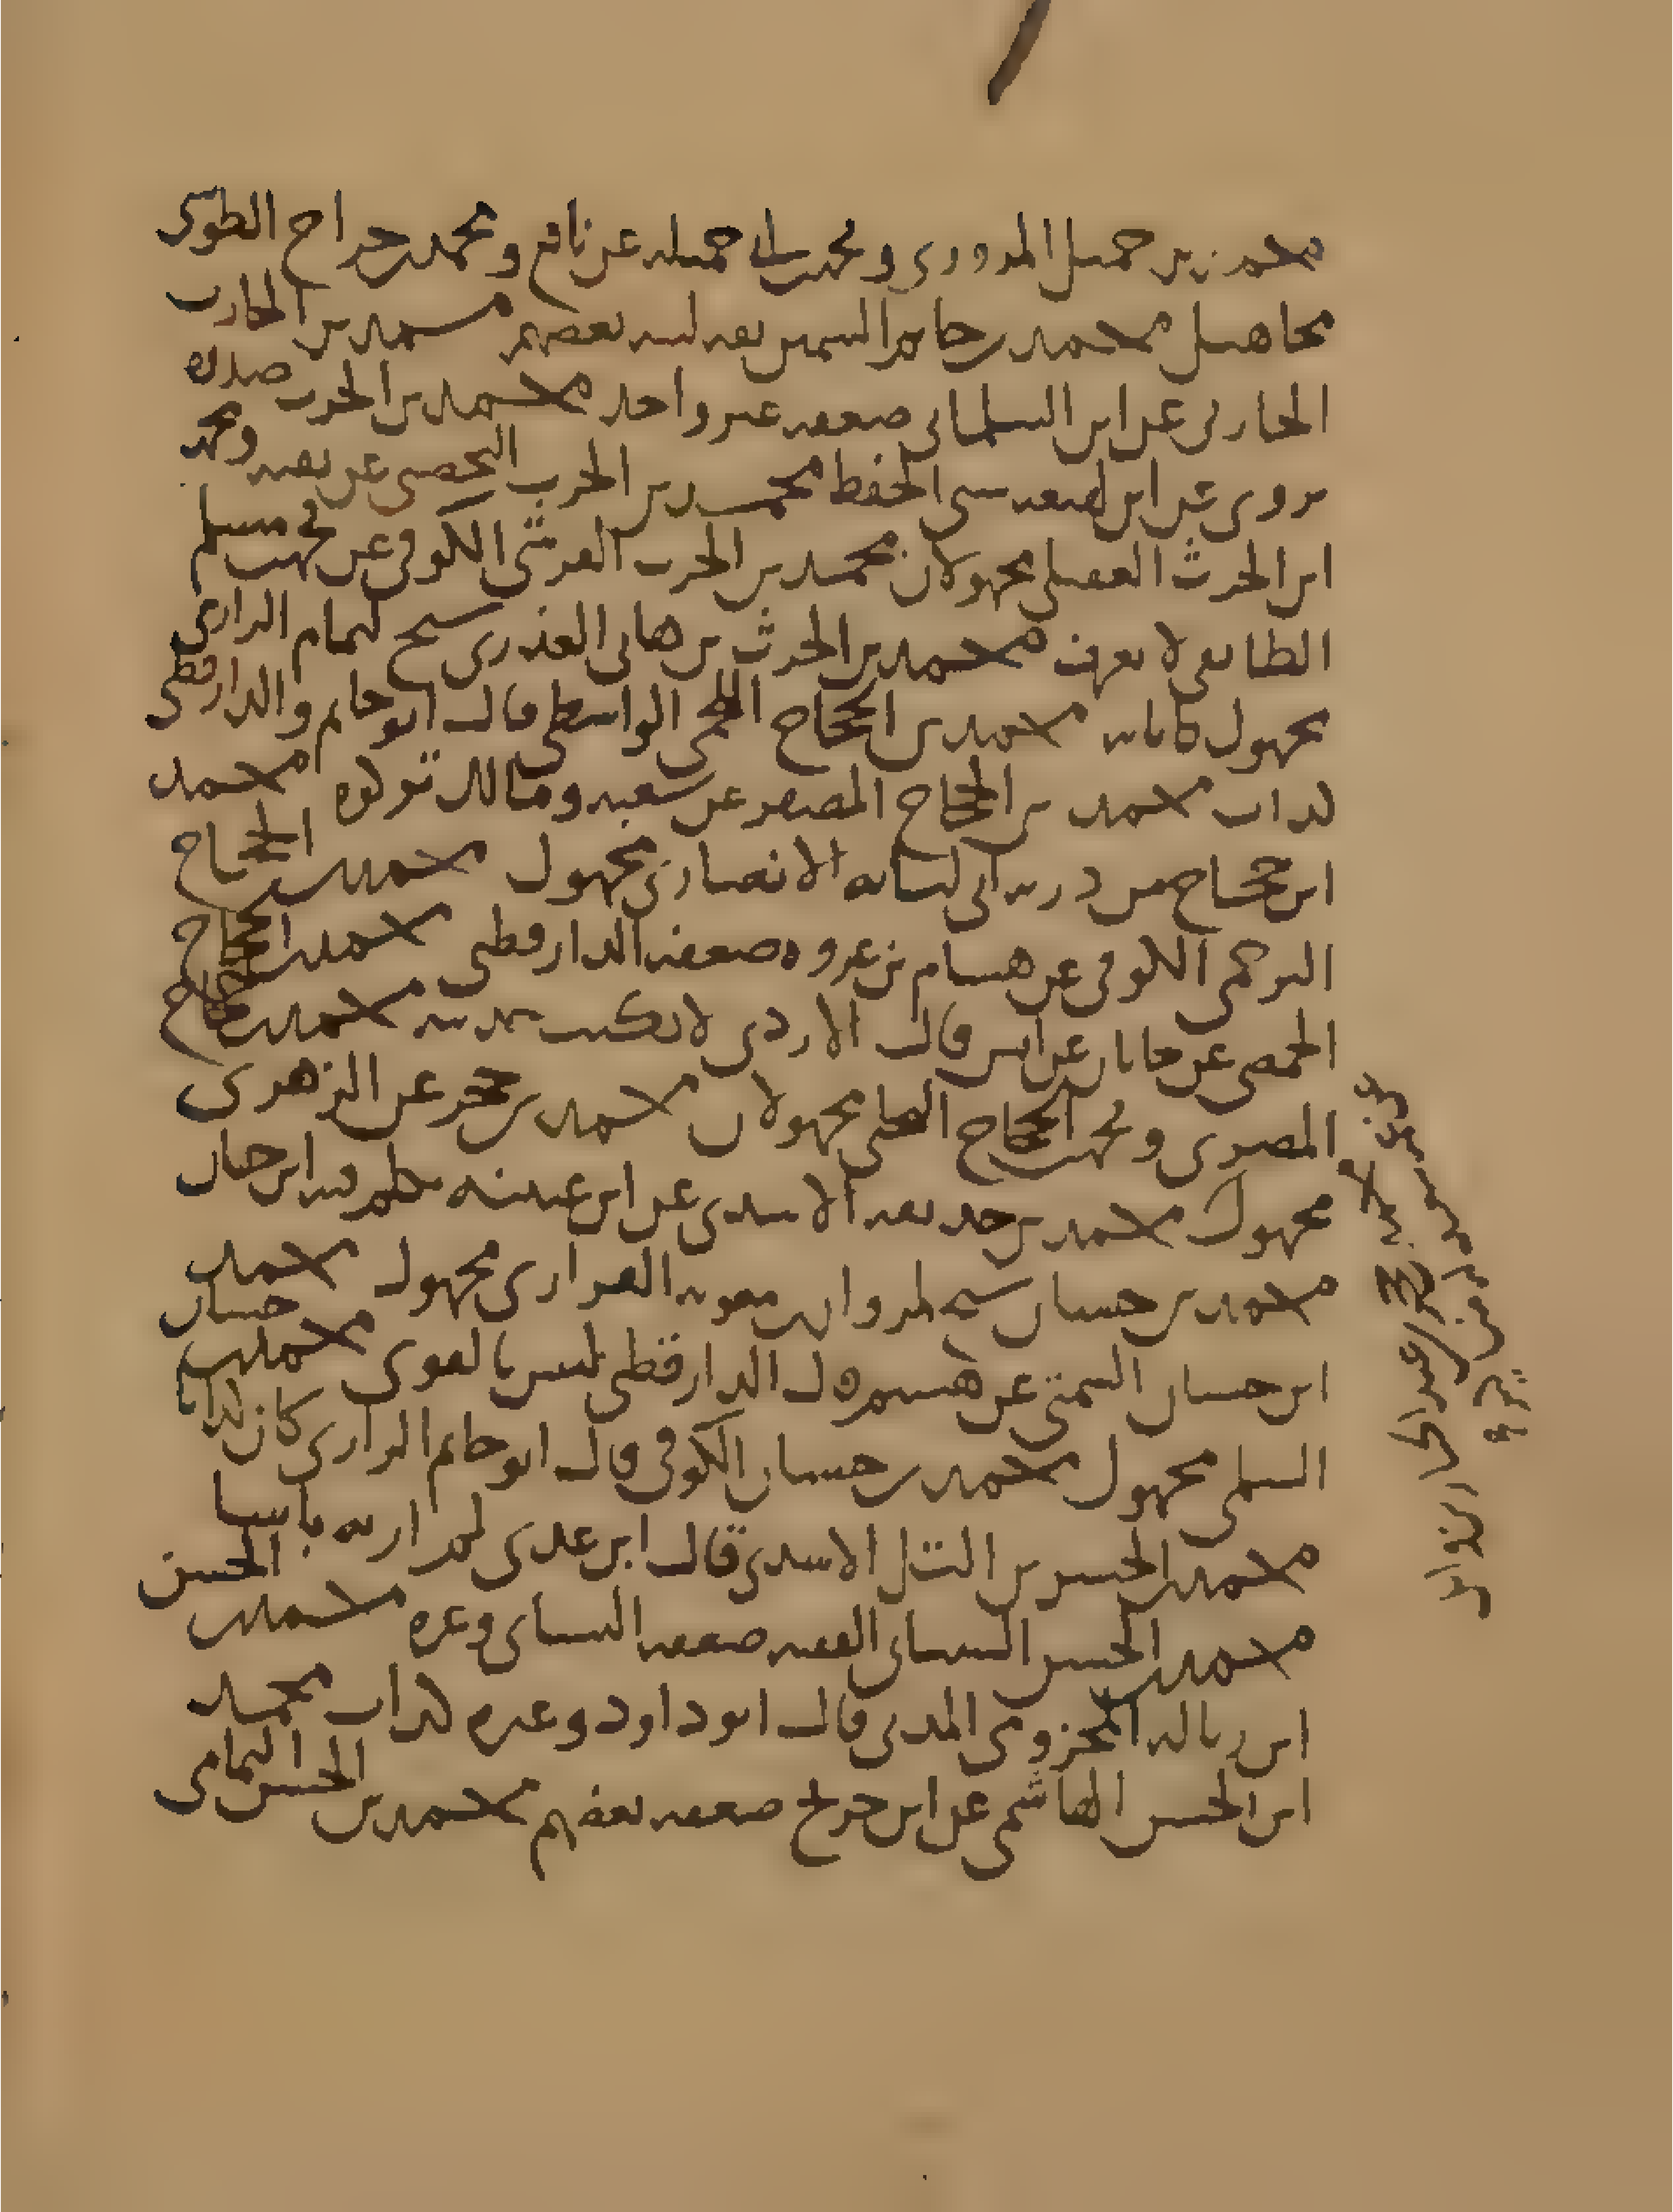 محمد بن جميل المروزي ومحمد بن ابي جميله عن نافع ومحمد بن جراح الطوسي
مجاهيل محمد بن حاتم السمين ثقه لينه بعضهم محمد بن الحارث
الحارثي عن ابن البيلماني ضعفه غير واحد محمد بن الحرث صدره
يروي عن ابن لهيعه سيئ الحفظ محمد بن الحرث اليحصبي عن بقيه ومحمد
ابن الحرث العقيلي مجهولان محمد بن الحرث القرشي الكوفي عن محمد بن مسلم
الطائفي لا يعرف محمد بن الحرث بن هاني العذري شيخ لتمام الرازي
مجهول كابيه محمد بن الحجاج اللخمي الواسطي قال ابو حاتم والدارقطني
كذاب محمد بن الحجاج المصفر عن شعبه ومالك تركوه محمد
ابن حجاج من ذريه ابي لبابه الانصاري مجهول محمد بن الحجاج
البرجمي الكوفي عن هشام بن عروه ضعفه الدارقطني محمد بن الحجاج
الحمصي عن جابان عن انس قال الازدي لا يكتب حديثه محمد بن حجاج
المصري ومحمد بن الحجاج المحلي مجهولان محمد بن حجر عن الزهري
مجهول محمد بن حذيفه الاسدي عن ابن عيينه تكلم فيه ابن حبان
محمد بن حسان شيخ لمروان بن معويه الفزاري مجهول محمد
ابن حسان السمتي عن هشيم قال الدارقطني ليس بالقوي محمد بن حسان
السلمي مجهول محمد بن حسان الكوفي قال ابو حاتم الرازي كان كذابا
محمد بن الحسن بن التل الاسدي قال ابن عدي لم ار به باسا
محمد بن الحسن الشيباني الفقيه ضعفه النسائي وغيره محمد بن الحسن
ابن زباله المخزومي المدني قال ابو داود وغيره كذاب محمد
ابن الحسن الهاشمي عن ابن جريج ضعفه بعضهم محمد بن الحسن اليمامي